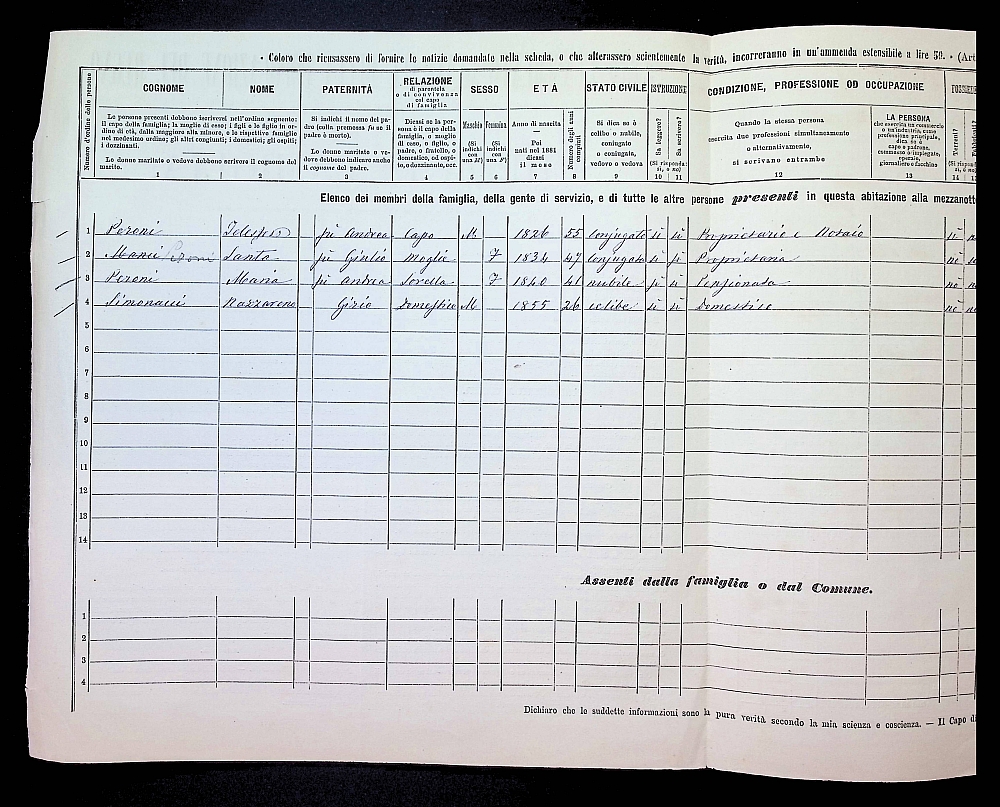 · Coloro che ricusassero di fornire le notizie domandate nella scheda, o che alterassero scientemente la verità, incorreranno in un'ammenda estensibile a lire 50. - (Art
Numero d'ordine delle persone
COGNOME
NOME
Le persone presenti debbono iscriversi nell'ordine seguente: il capo della famiglia; la moglie di esso; i figli e le figlie in ordine di età, dalla maggiore alla minore, e le rispettive famiglie nel medesimo ordine; gli altri congiunti; i domestici; gli ospiti; i dozzinanti.
Le donne maritate o vedove debbono scrivere il cognome del marito.
1 2
PATERNITÀ
Si indichi il nome del padre (colla premessa fu se il padre è morto).
Le donne maritate o vedove debbono indicare anche il cognome del padre.
3
RELAZIONE
di parentela
o di convivenza
col capo
di famiglia
Dicasi se la persona è il capo della famiglia, o moglie di esso, o figlio, o padre, o fratello, o domestico, od ospite, o dozzinante, ecc.
4
SESSO
Maschio
(Si indichi con una M)
5
Femmina
(Si indichi con una F)
6
ETÀ
Anno di nascita
—
Poi nati nel 1881 dicasi il mese
7
Numero degli anni compiuti
8
STATO CIVILE
Si dica se è
celibe o nubile,
coniugato
o coniugata,
vedovo o vedova
9
ISTRUZIONE
Sa leggere?
Sa scrivere?
(Si risponda: sì, o no)
10 11
CONDIZIONE, PROFESSIONE OD OCCUPAZIONE
Quando la stessa persona
esercita due professioni simultaneamente
o alternativamente,
si scrivano entrambe
12
LA PERSONA
che esercita un commercio
o un'industria, come
professione principale,
dica se è
capo o padrone,
commesso o impiegato,
operaio,
giornaliero o facchino
13
Terreni?
14
Elenco dei membri della famiglia, della gente di servizio, e di tutte le altre persone presenti in questa abitazione alla mezzanotte
1 Peroni Telesforo fu Andrea Capo M 1826 55 Conjugato sì sì Proprietario e Notaio sì
2 Manii Peroni Santa fu Giulio Moglie F 1834 47 Conjugata sì sì Proprietaria no
3 Peroni Maria fu Andrea Sorella F 1840 41 nubile sì sì Pensionata no
4 Simonacci Nazzareno Gizio Domestico M 1855 26 celibe sì sì Domestico no
5
6
7
8
9
10
11
12
13
14
Assenti dalla famiglia o dal Comune.
1
2
3
4
Dichiaro che le suddette informazioni sono la pura verità secondo la mia scienza e coscienza. — Il Capo di